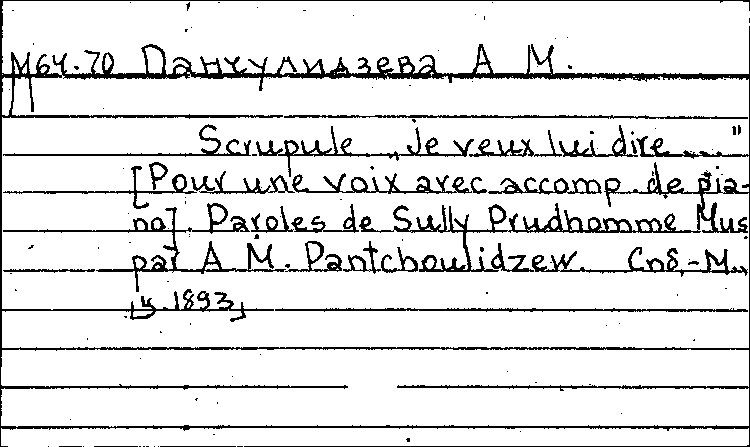 М64.70 Панчулидзева, А М.
Scrupule „Je veux lui dire...."
[Pour une voix avec accomp. de pia-
no]. Paroles de Sully Prudhomme Mus
par A M. Pantchoulidzew. Спб,-М.,
[ц. 1893]